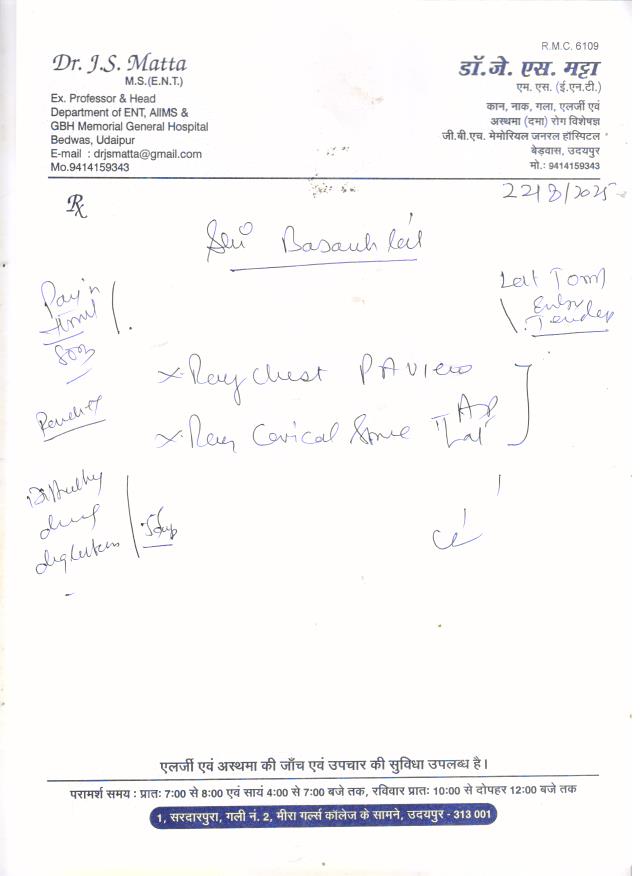 R.M.C. 6109
Dr. J.S. Matta
M.S.(E.N.T.)
Ex. Professor & Head
Department of ENT, AIIMS &
GBH Memorial General Hospital
Bedwas, Udaipur
E-mail : drjsmatta@gmail.com
Mo.9414159343
डॉ. जे. एस. मट्टा
एम. एस. (ई.एन.टी.)
कान, नाक, गला, एलर्जी एवं
अस्थमा (दमा) रोग विशेषज्ञ
जी.बी.एच. मेमोरियल जनरल हॉस्पिटल
बेड़वास, उदयपुर
मो.: 9414159343
22/8/2025
Rx
Basanti lal
Pain
Lat
Tender
X-Ray Chest PA View
X-Ray Cervical Spine AP
Lat
एलर्जी एवं अस्थमा की जाँच एवं उपचार की सुविधा उपलब्ध है।
परामर्श समय : प्रातः 7:00 से 8:00 एवं सायं 4:00 से 7:00 बजे तक, रविवार प्रातः 10:00 से दोपहर 12:00 बजे तक
1, सरदारपुरा, गली नं. 2, मीरा गर्ल्स कॉलेज के सामने, उदयपुर - 313 001